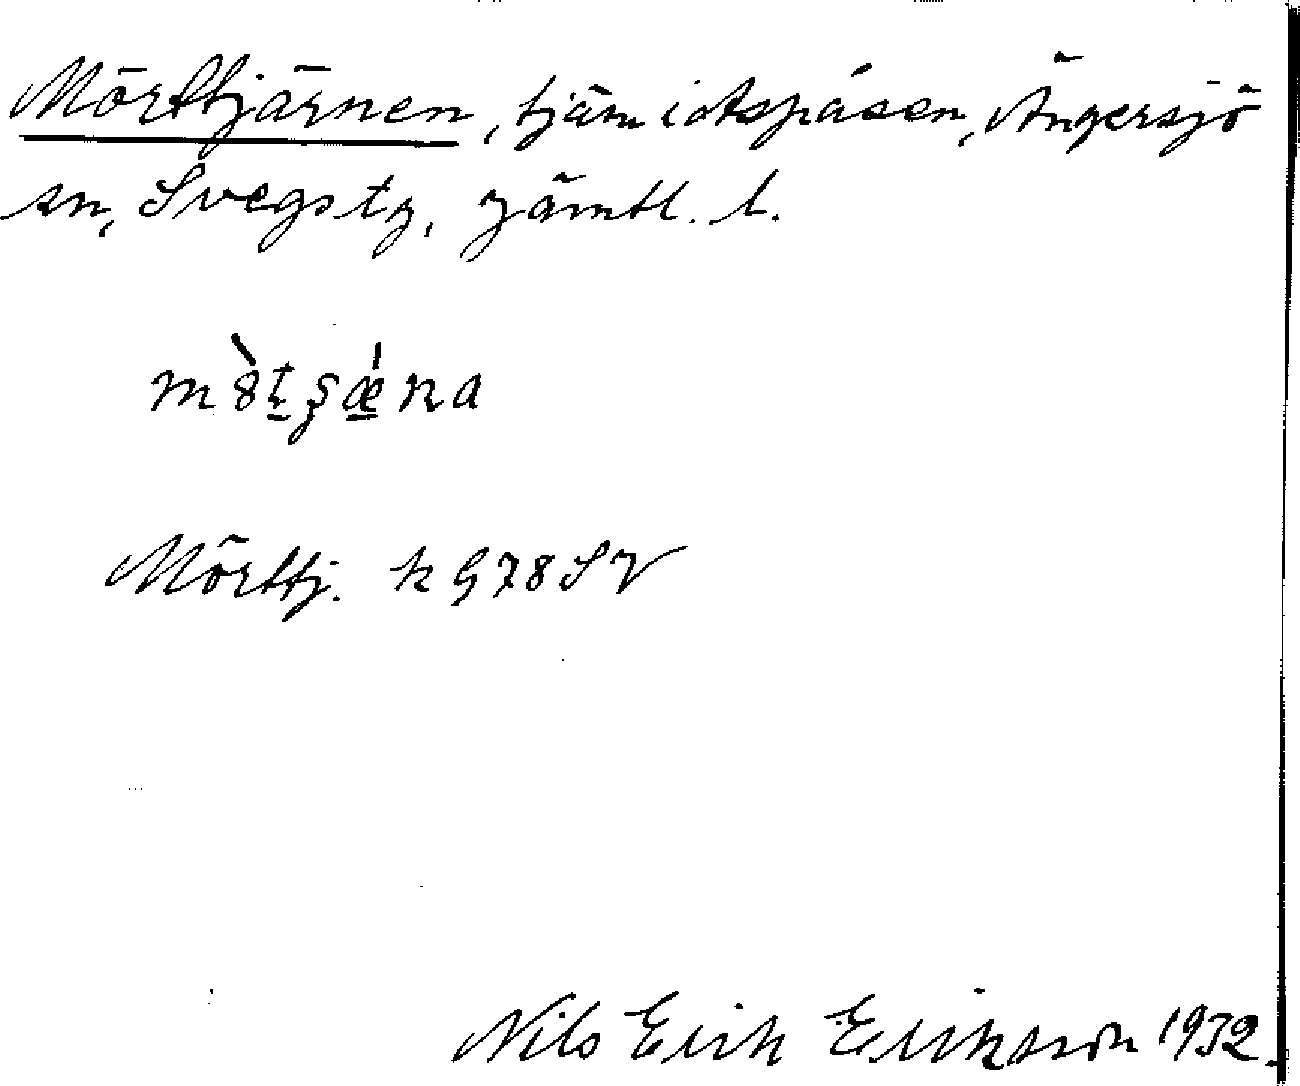 Mörttjärnen, tjärn i Aspåsen, Ängersjö
sn, Svegs tg, Jämtl. l.
Mörttj. k G78SV
Nils Erik Eriksson 1932.